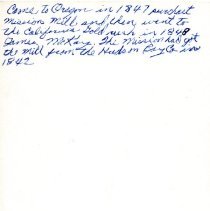 Came to Oregon in 1847 purchast
Mission Mill and then went to
the California Gold rush in 1848
James McKay. The Mission had got
the Mill from the Hudson Bay Co in
1842